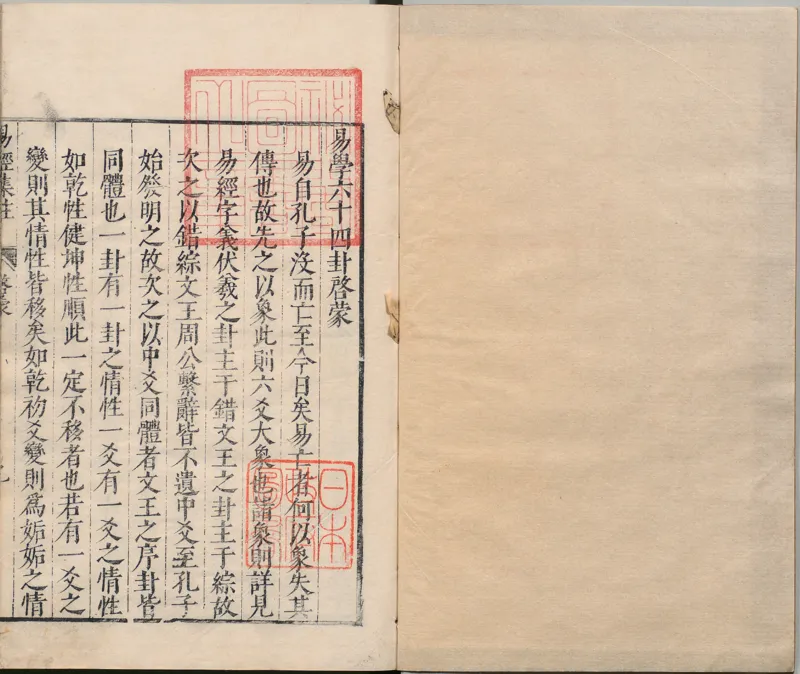 易學六十四卦啓蒙
易自孔子沒而亡至今日矣易亡者何以象失其
傳也故先之以象此則六爻大象也諸象則詳見
易經字義伏羲之卦主于錯文王之卦主于綜故
次之以錯綜文王周公繫辭皆不遺中爻至孔子
始發明之故次之以中爻同體者文王之序卦皆
同體也一卦有一卦之情性一爻有一爻之情性
如乾性健坤性順此一定不移者也若有一爻之
變則其情性皆移矣如乾初爻變則爲姤姤之情
易經集註
啓蒙